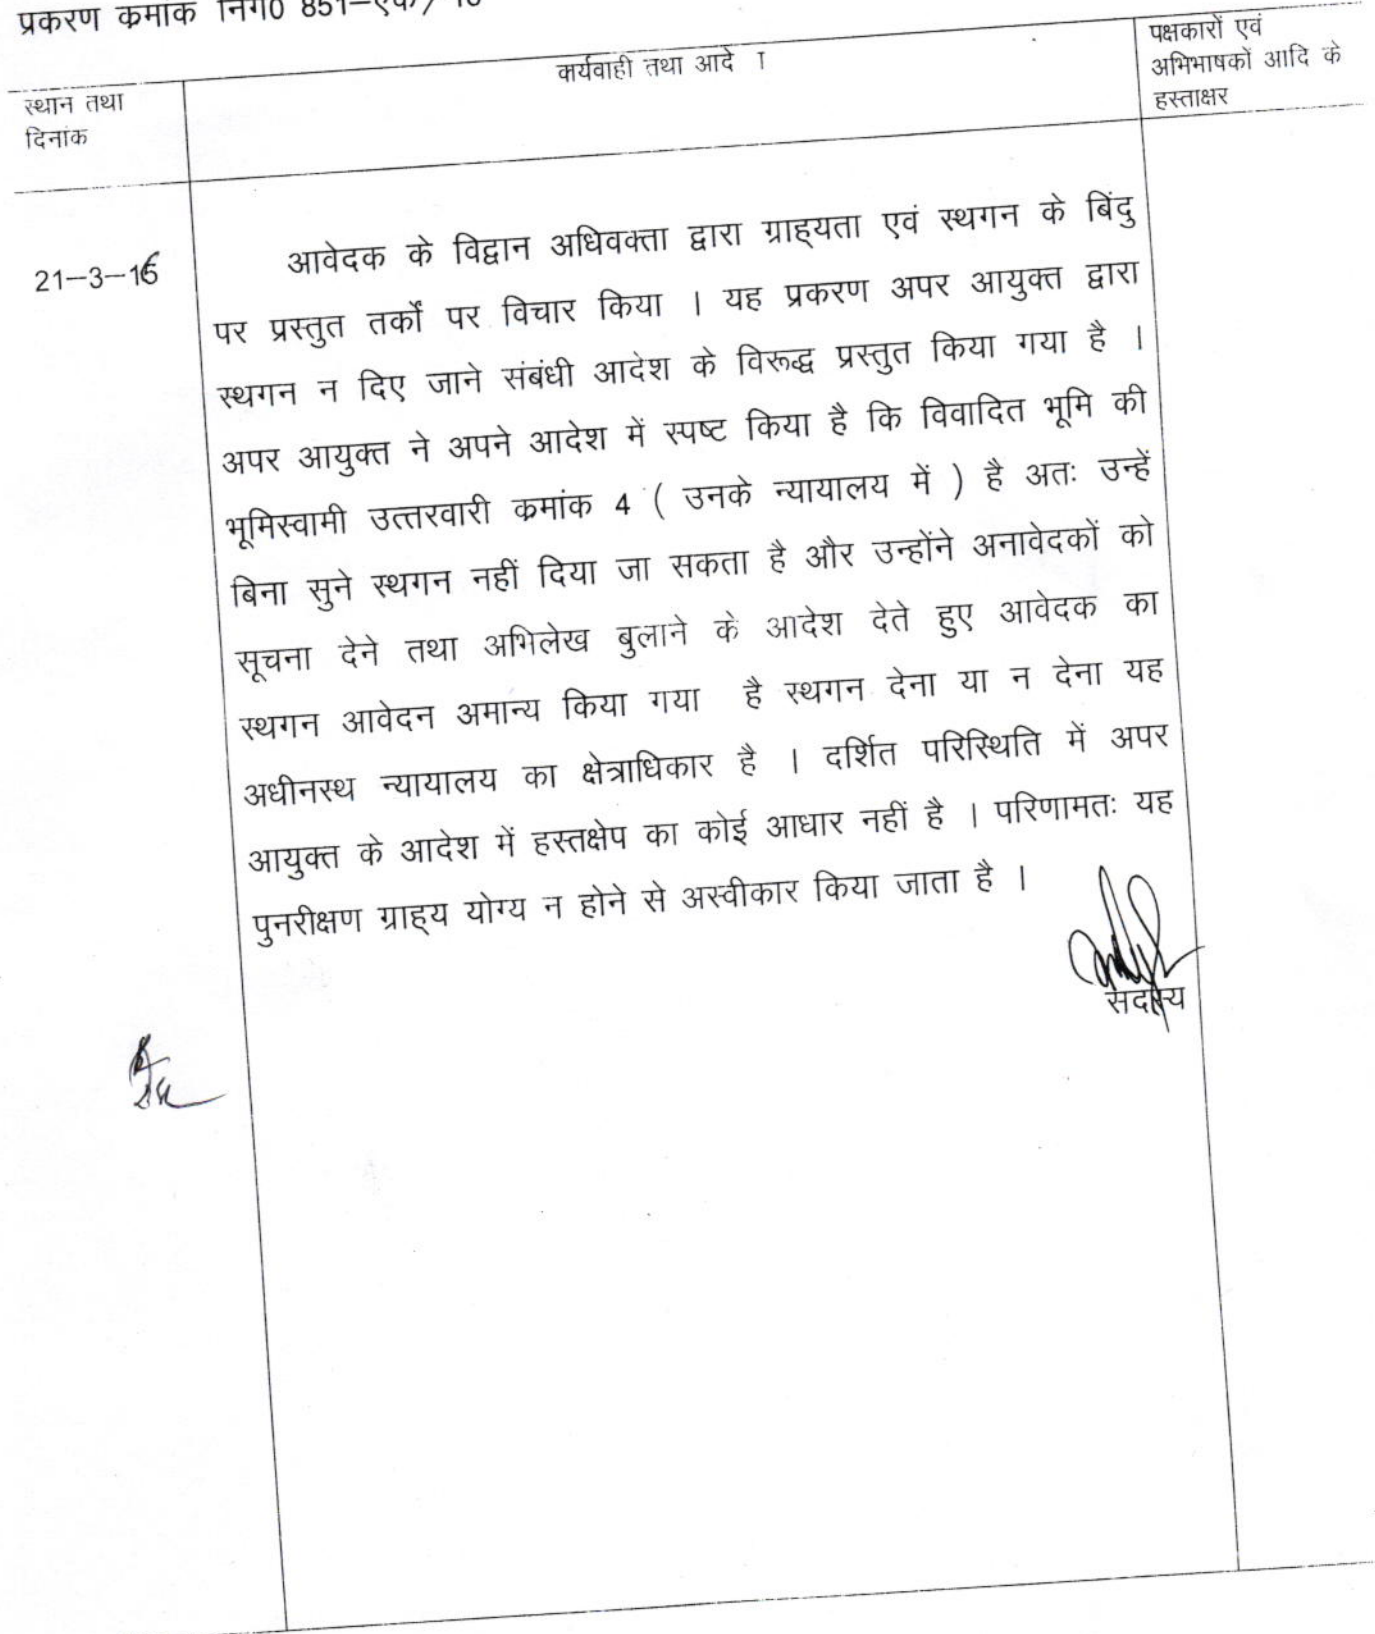 प्रकरण क्रमांक निग0 851-एक/
कार्यवाही तथा आदे ा
पक्षकारों एवं
अभिभाषकों आदि के
हस्ताक्षर
स्थान तथा
दिनांक
21-3-16
आवेदक के विद्वान अधिवक्ता द्वारा ग्राह्यता एवं स्थगन के बिंदु
पर प्रस्तुत तर्कों पर विचार किया । यह प्रकरण अपर आयुक्त द्वारा
स्थगन न दिए जाने संबंधी आदेश के विरूद्ध प्रस्तुत किया गया है ।
अपर आयुक्त ने अपने आदेश में स्पष्ट किया है कि विवादित भूमि की
भूमिस्वामी उत्तरवारी क्रमांक 4 ( उनके न्यायालय में ) है अतः उन्हें
बिना सुने स्थगन नहीं दिया जा सकता है और उन्होंने अनावेदकों को
सूचना देने तथा अभिलेख बुलाने के आदेश देते हुए आवेदक का
स्थगन आवेदन अमान्य किया गया है स्थगन देना या न देना यह
अधीनस्थ न्यायालय का क्षेत्राधिकार है । दर्शित परिस्थिति में अपर
आयुक्त के आदेश में हस्तक्षेप का कोई आधार नहीं है । परिणामतः यह
पुनरीक्षण ग्राह्य योग्य न होने से अस्वीकार किया जाता है ।
सदस्य